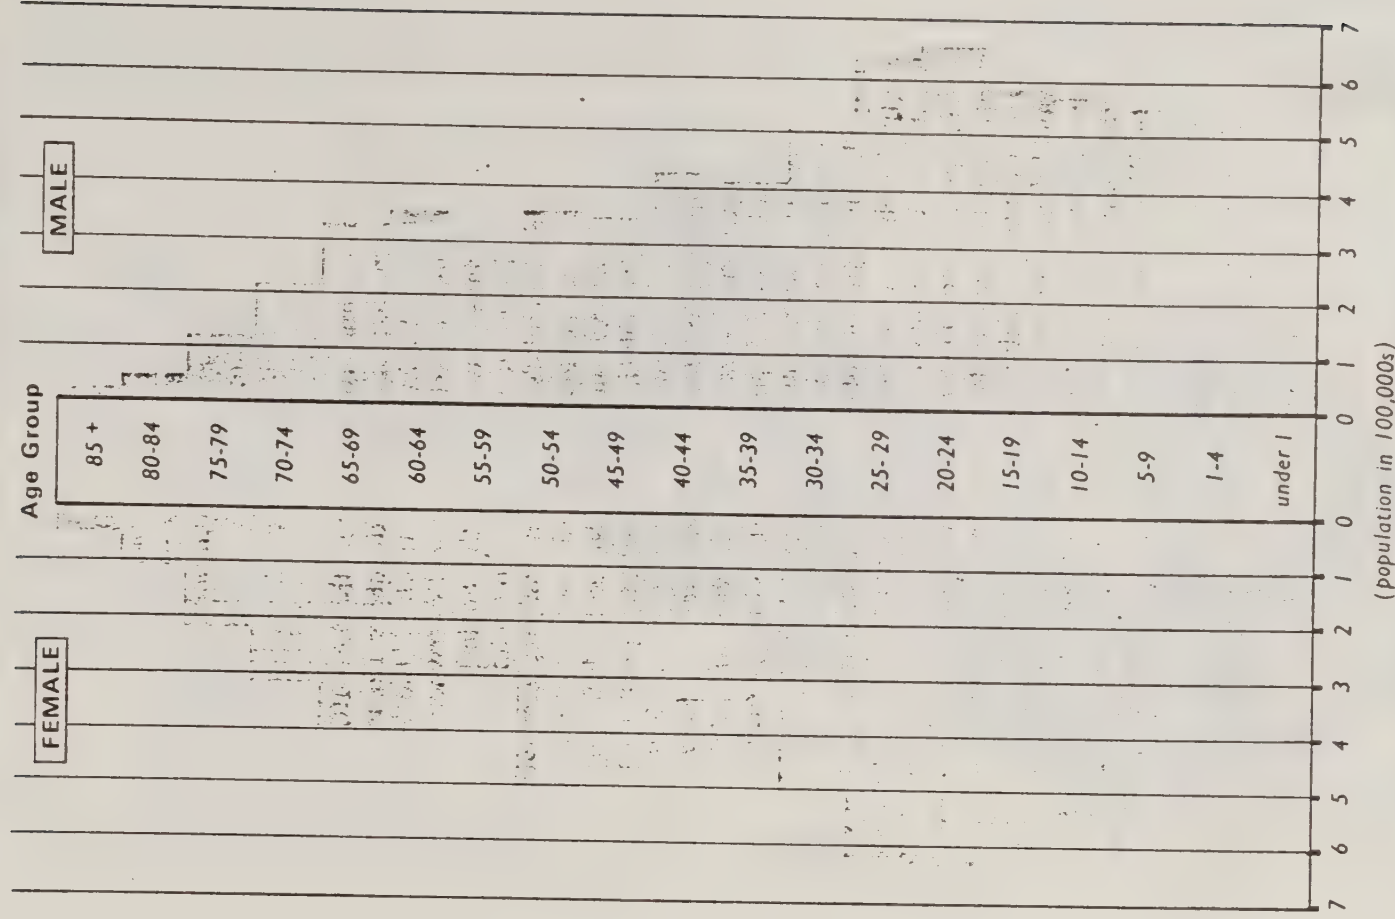 Age Group
FEMALE
MALE
85 +
80-84
75-79
70-74
65-69
60-64
55-59
50-54
45-49
40-44
35-39
30-34
25-29
20-24
15-19
10-14
5-9
1-4
under 1
7 6 5 4 3 2 1 0 0 1 2 3 4 5 6 7
(population in 100,000s)